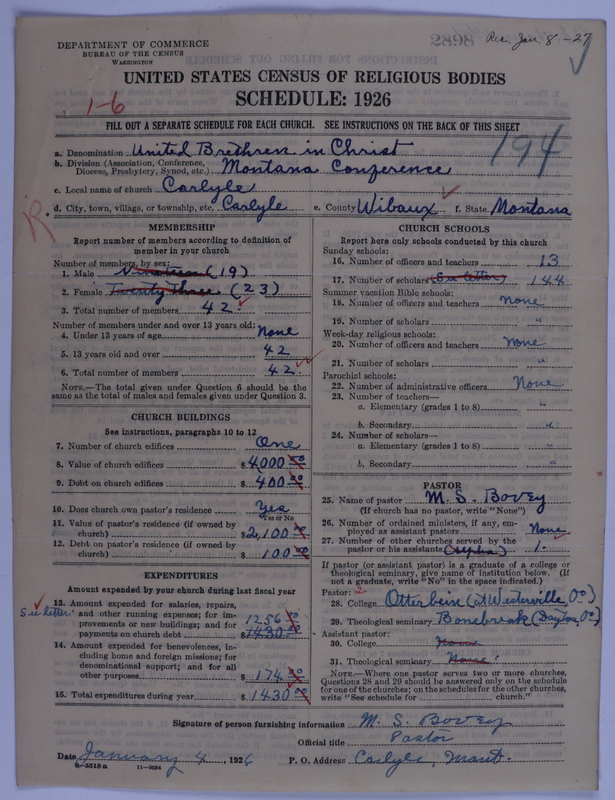 DEPARTMENT OF COMMERCE
BUREAU OF THE CENSUS
WASHINGTON
Rec. Jan 8 - 27
UNITED STATES CENSUS OF RELIGIOUS BODIES
SCHEDULE: 1926
1-6
FILL OUT A SEPARATE SCHEDULE FOR EACH CHURCH. SEE INSTRUCTIONS ON THE BACK OF THIS SHEET
194
a. Denomination United Brethren in Christ
b. Division (Association, Conference, Diocese, Presbytery, Synod, etc.) Montana Conference
c. Local name of church Carlyle
d. City, town, village, or township, etc. Carlyle e. County Wibaux f. State Montana
R
MEMBERSHIP
Report number of members according to definition of
member in your church
Number of members, by sex:
1. Male Nineteen (19)
2. Female Twenty Three (23)
3. Total number of members 42
Number of members under and over 13 years old:
4. Under 13 years of age None
5. 13 years old and over 42
6. Total number of members 42
NOTE.—The total given under Question 6 should be
same as the total of males and females given under Question 3.
CHURCH BUILDINGS
See instructions, paragraphs 10 to 12
7. Number of church edifices One
8. Value of church edifices $4000 00
9. Debt on church edifices $400 00
10. Does church own pastor's residence? Yes
Yes or No
11. Value of pastor's residence (if owned by
church) $2,100 00
12. Debt on pastor's residence (if owned by
church) $100 00
EXPENDITURES
Amount expended by your church during last fiscal year
See letter
13. Amount expended for salaries, repairs,
and other running expenses; for im-
provements or new buildings; and for
payments on church debt $1256 00
1430 00
14. Amount expended for benevolences, in-
cluding home and foreign missions; for
denominational support; and for all
other purposes $174 00
15. Total expenditures during year $1430 00
CHURCH SCHOOLS
Report here only schools conducted by this church
Sunday schools:
16. Number of officers and teachers 13
17. Number of scholars (See letter) 144
Summer vacation Bible schools:
18. Number of officers and teachers None
19. Number of scholars "
Week-day religious schools:
20. Number of officers and teachers None
21. Number of scholars "
Parochial schools:
22. Number of administrative officers None
23. Number of teachers—
a. Elementary (grades 1 to 8) "
b. Secondary "
24. Number of scholars—
a. Elementary (grades 1 to 8) "
b. Secondary "
PASTOR
25. Name of pastor M. S. Bovey
(If church has no pastor, write "None")
26. Number of ordained ministers, if any, em-
ployed as assistant pastors None
27. Number of other churches served by the
pastor or his assistants 1.
If pastor (or assistant pastor) is a graduate of a college or
theological seminary, give name of institution below. (If
not a graduate, write "No" in the space indicated.)
Pastor: 2
28. College Otterbein (at Westerville, O.)
29. Theological seminary Bonebreak (Dayton, O.)
Assistant pastor:
30. College None
31. Theological seminary None
NOTE.—Where one pastor serves two or more churches,
Questions 28 and 29 should be answered only on the schedule
for one of the churches; on the schedules for the other churches,
write "See schedule for church."
Signature of person furnishing information M. S. Bovey
Official title Pastor
Date January 4, 1926 P. O. Address Carlyle, Mont.
8-5518a 11-9034